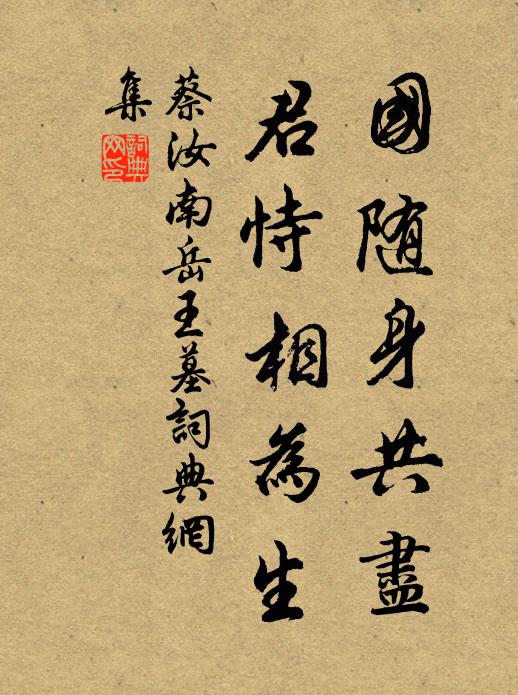 國随身共盡
君恃相為生
蔡汝南岳王墓詞典網
集
詞典
网印